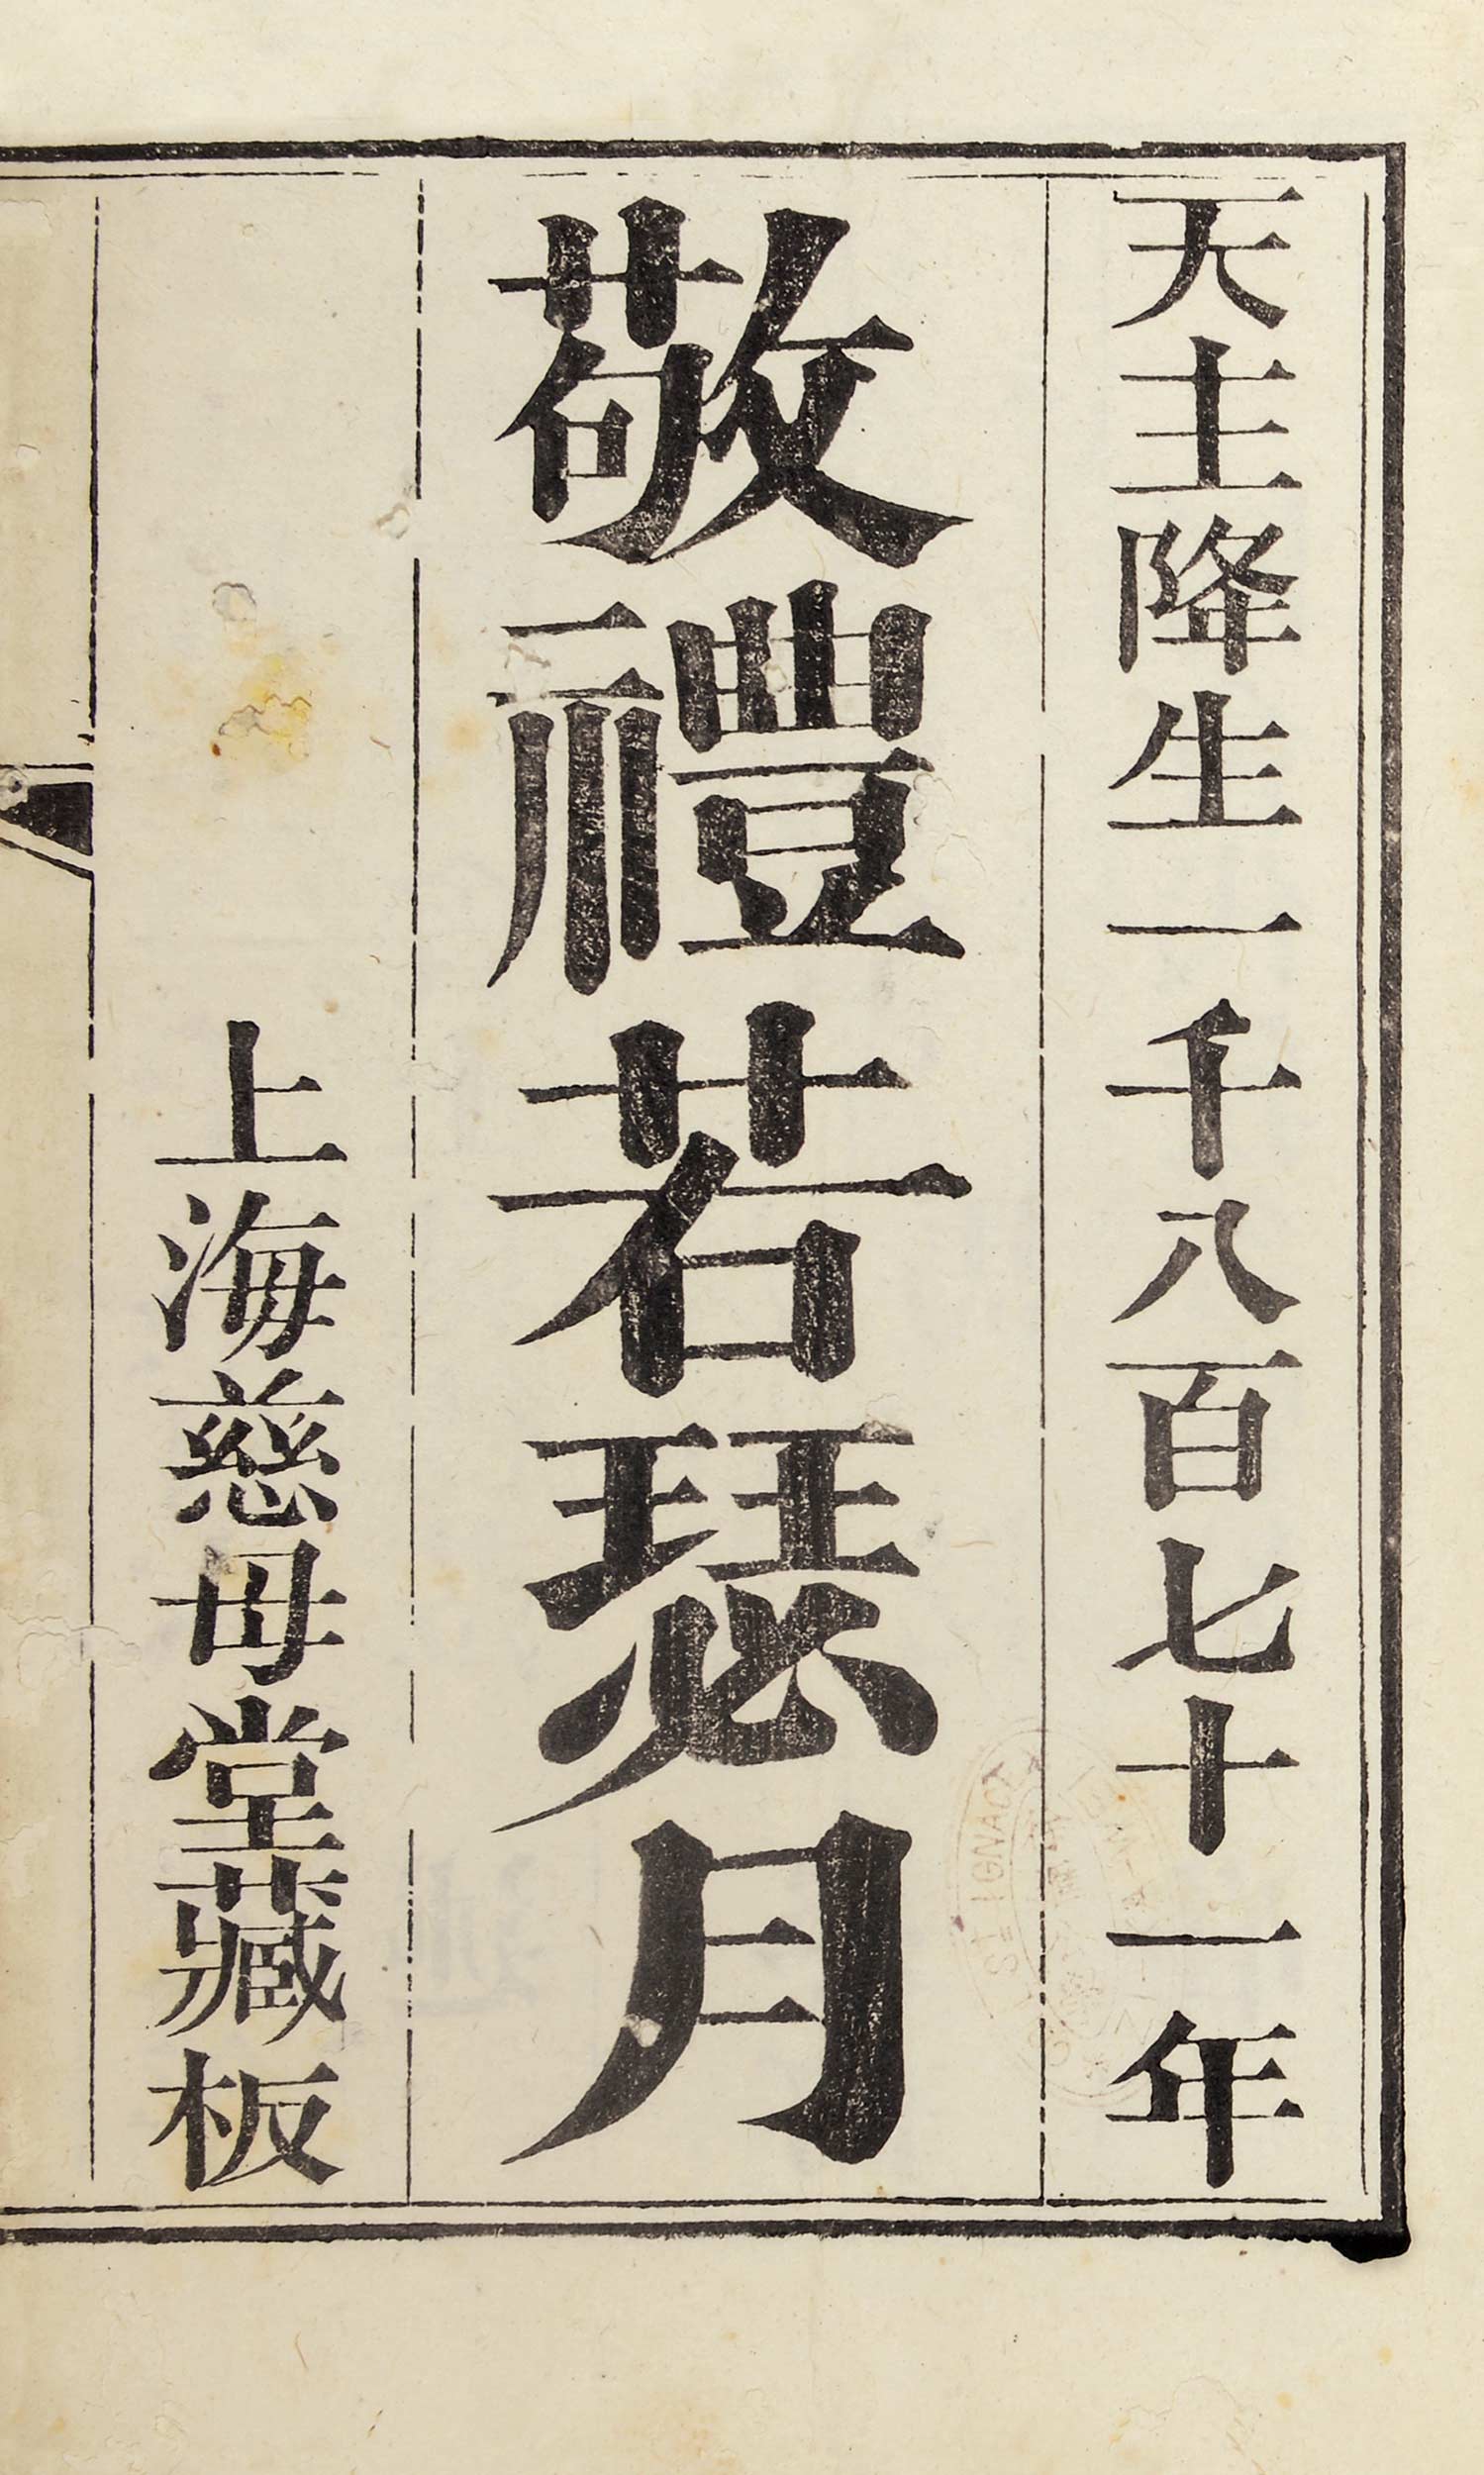 天主降生一千八百七十一年
敬禮若瑟月
上海慈母堂藏板